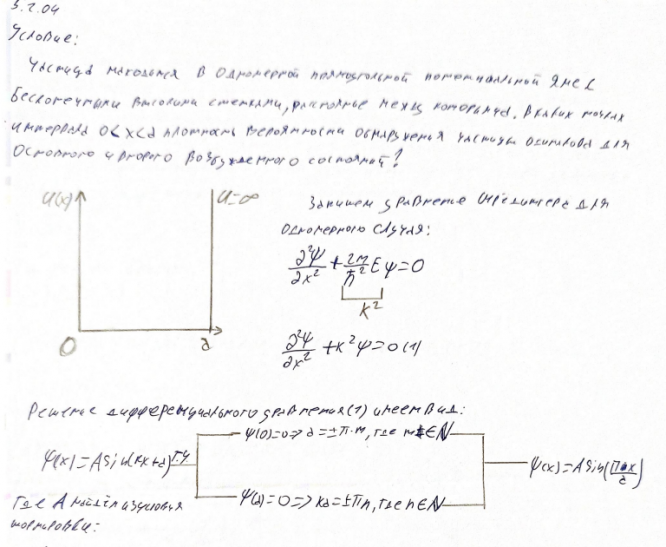 3.2.04
Условие:
Частица находится в одномерной прямоугольной потенциальной яме с
бесконечными высокими стенками, расстояние между которыми a. В каких точках
интервала 0<x<a плотность вероятности обнаружения частицы одинакова для
основного и второго возбужденного состояний?
U(x) U=∞
Запишем уравнение Шредингера для
одномерного случая:
∂²Ψ/∂x² + 2m/ħ² Eψ=0
k²
∂²Ψ/∂x² + k²ψ=0 (1)
0 a
Решение дифференциального уравнения (1) имеет вид:
ψ(0)=0 => α=±π·m, где m∈N
ψ(x)=Asin(kx+α) ГУ ψ(x)=Asin(πnx/a)
ψ(a)=0 => ka=±πn, где n∈N
где A найдём из условия
нормировки: